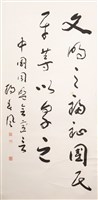 文明之福祉國民
平等以享之
中國同盟會宣言